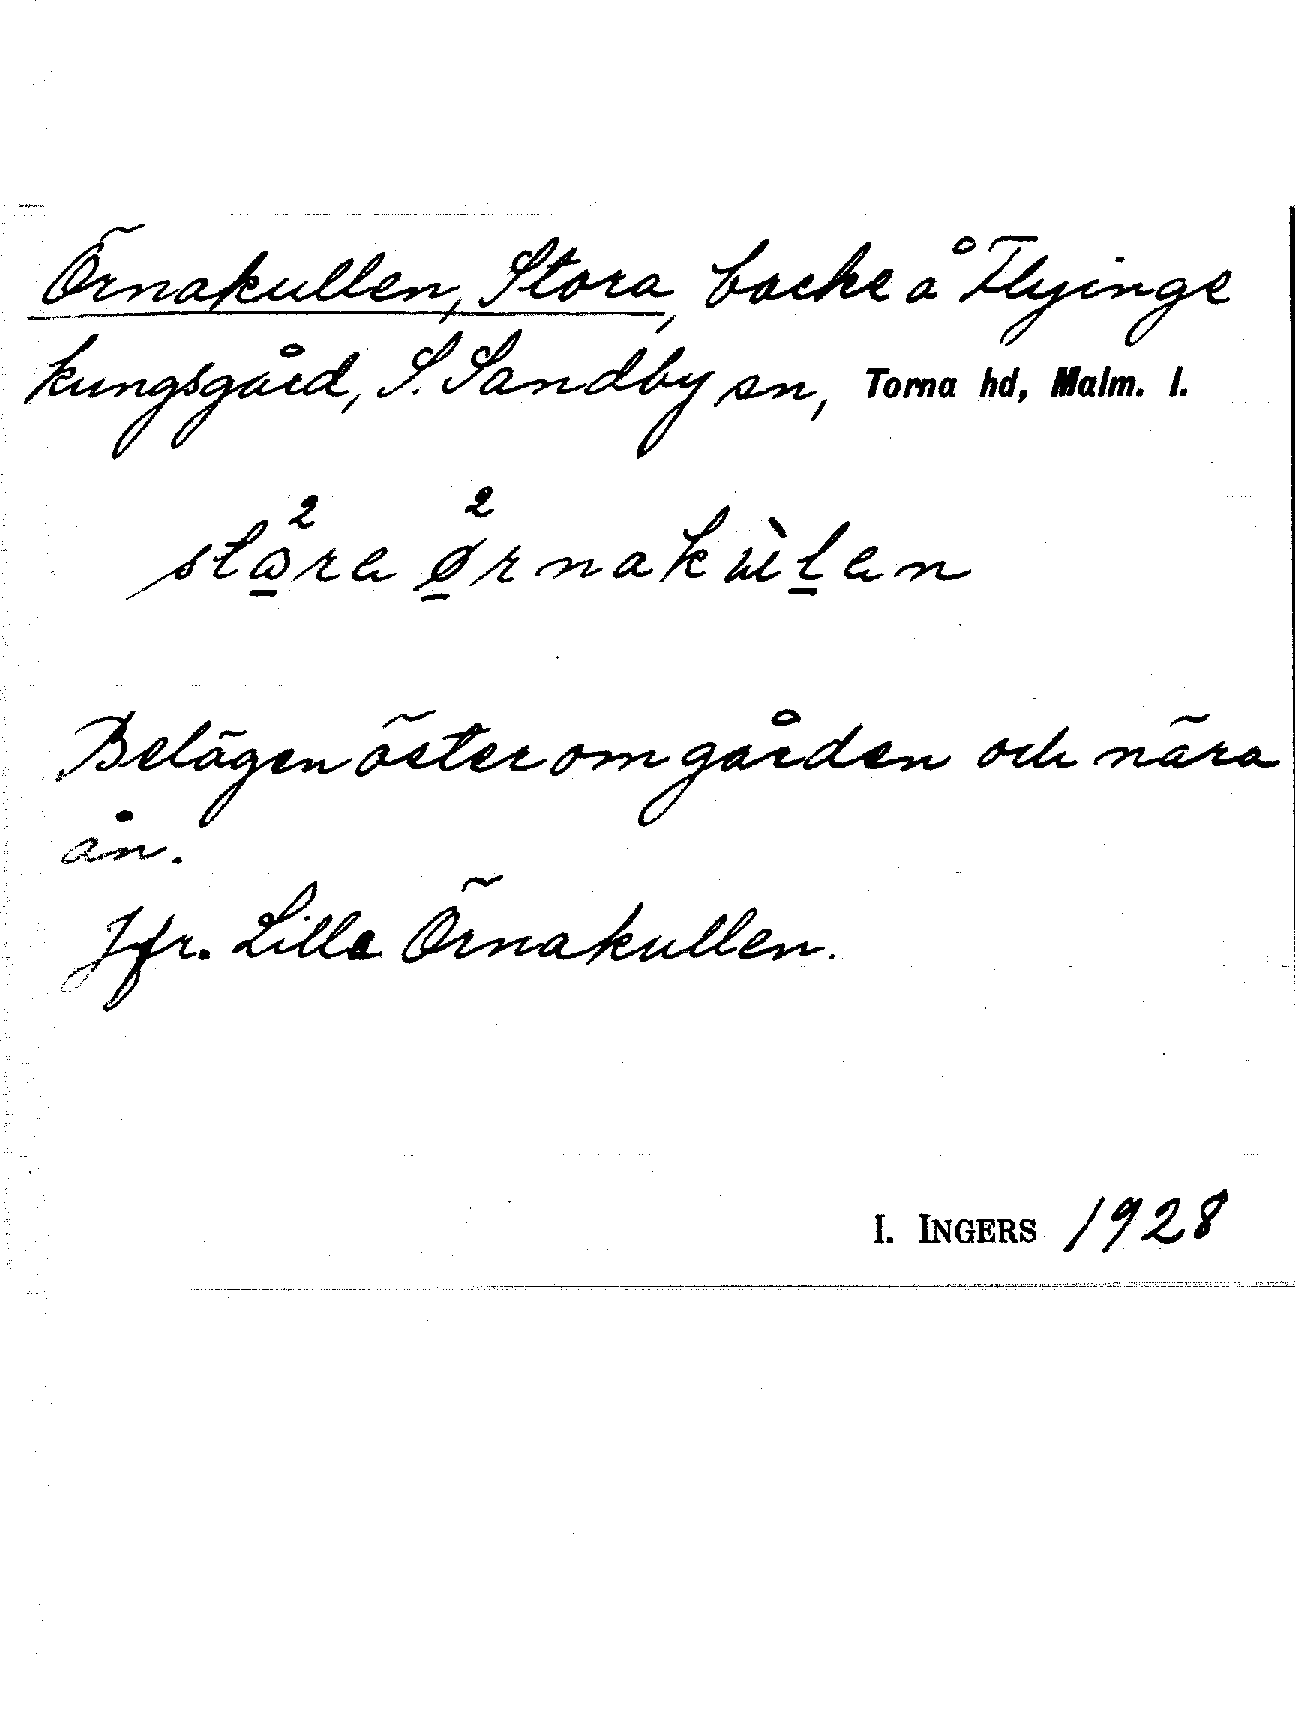 Örnakullen, Stora, backe å Flyinge
kungsgård, S. Sandby sn, Torna hd, Malm. l.
Belägen öster om gården och nära
ån.
Jfr. Lilla Örnakullen.
I. INGERS 1928